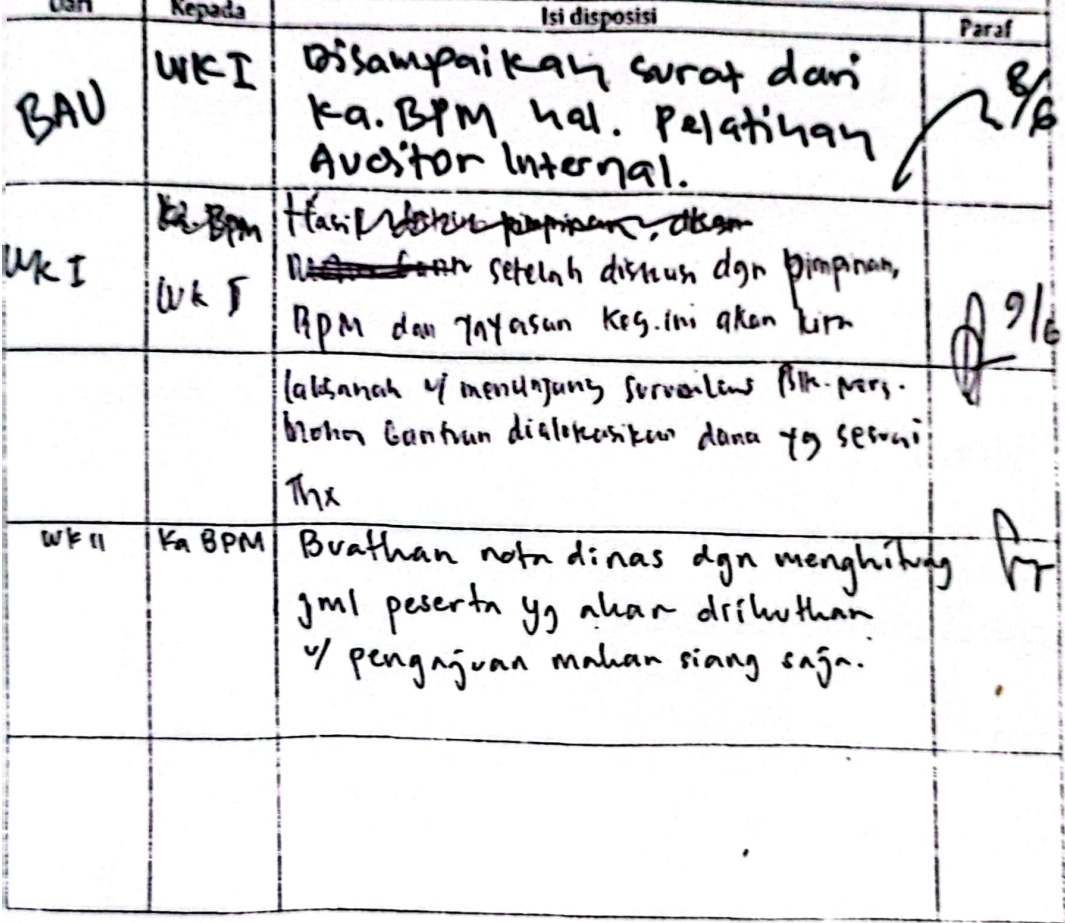 Dari Kepada Isi disposisi Paraf
BAU WK I Disampaikan surat dari 8/6
Ka. BPM hal. Pelatihan
Auditor Internal.
WK I Ka. BPM Hasil
setelah diskusi dgn pimpinan,
Wk II
BPM dan yayasan keg. ini akan kita 9/6
laksanak u/ menunjang surveilens
mohon bantuan dialokasikan dana yg sesuai
Thx
WK II Ka BPM Buatkan nota dinas dgn menghitung
jml peserta yg akan diikutkan
u/ pengajuan makan siang saja.